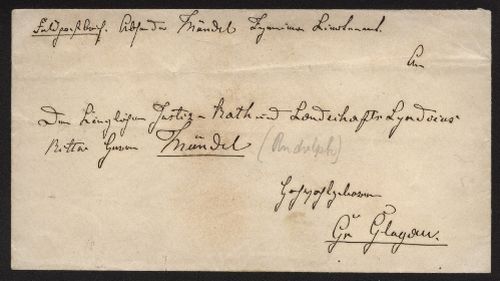 Feldpostbrief. Absender Mündel Premier Lieutenant.
An
Den Königlichen Justiz-Rath und Landschafts Syndicus
Ritter Herrn Mündel (Rudolph)
Hochwohlgeboren
Gr Glogau.